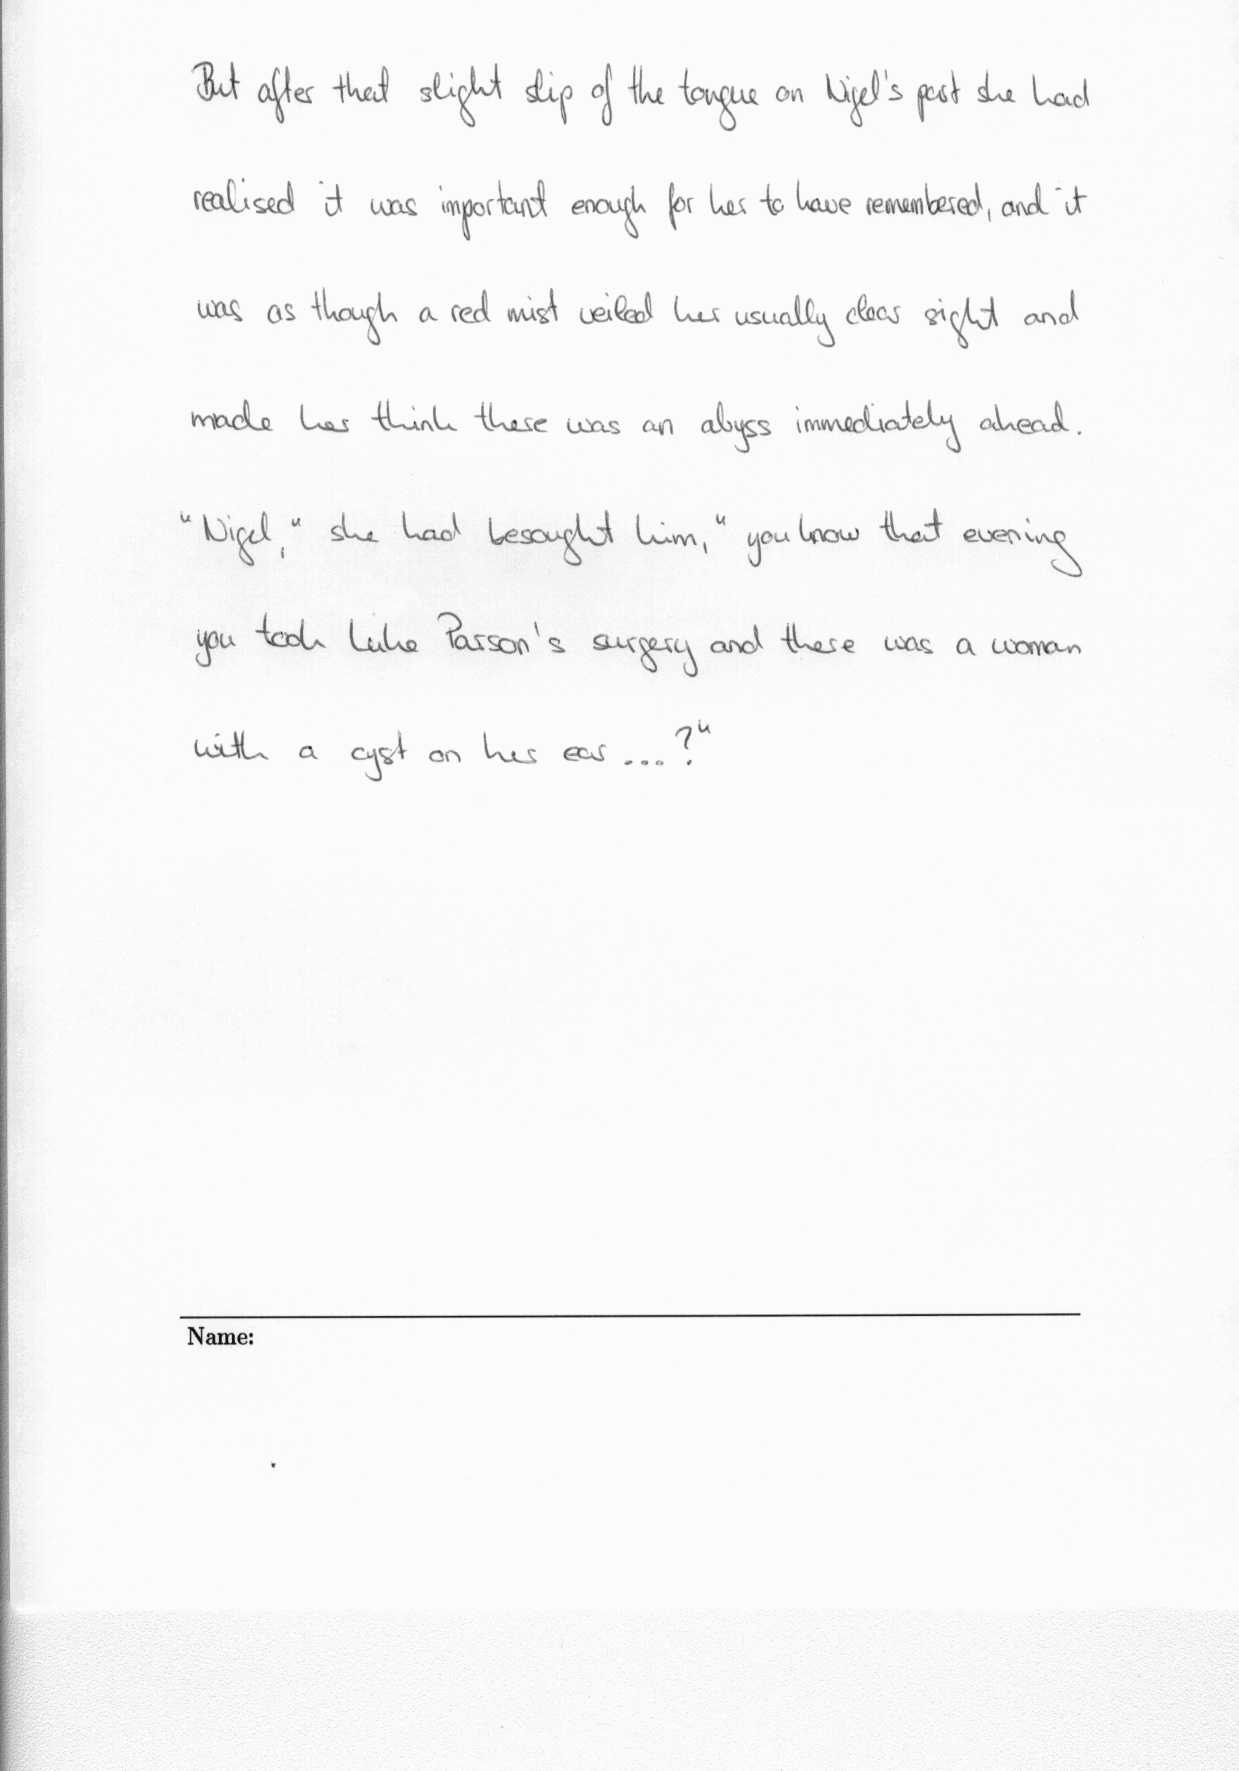 But after that slight slip of the tongue on Nigel's part she had
realised it was important enough for her to have remembered, and it
was as though a red mist veiled her usually clear sight and
made her think there was an abyss immediately ahead.
"Nigel," she had besought him, "you know that evening
you took Luke Parson's surgery and there was a woman
with a cyst on her ear ...?"
Name: